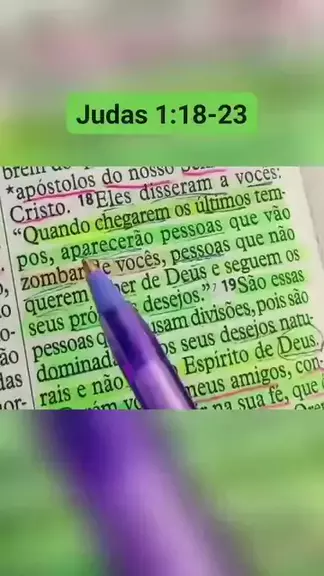 Judas 1:18-23
*apóstolos do nosso
Cristo. 18Eles disseram a vocês:
“Quando chegarem os últimos tem-
pos, aparecerão pessoas que vão
zombar de vocês, pessoas que não
querem de Deus e seguem os
seus desejos.” 19São essas
pessoas divisões, pois são
dominad seus desejos natu-
rais e não Espírito de Deus.
meus amigos, con-
na sua fé, que